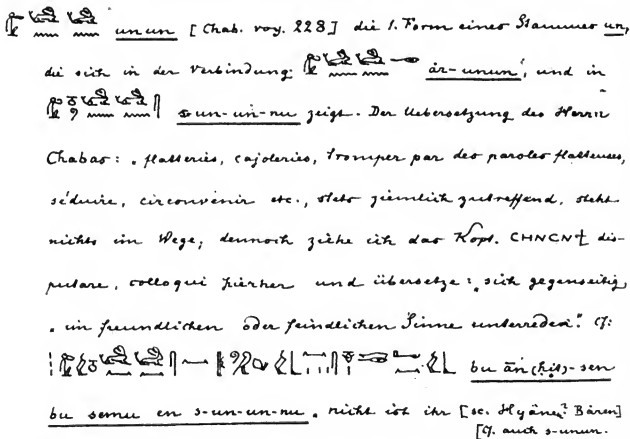 unun [Chab. voy. 228] die 1. Form eines Stammes un,
die sich in der Verbindung: ār-unun, und in
s-un-un-nu zeigt. Der Uebersetzung des Herrn
Chabas: „flatteries, cajoleries, tromper par des paroles flatteuses,
séduire, circonvenir etc., stets ziemlich zutreffend, steht
nichts im Wege; dennoch ziehe ich das Kopt. CHNCNϯ dis-
putare, colloqui hierher und übersetze: „sich gegenseitig
„im freundlichen oder feindlichen Sinne unterreden“. Cf:
bu ān(ḥit)-sen
bu semu en s-un-un-nu „nicht ist ihr [sc. Hyänen? Bären]
[cf. auch s-unun.